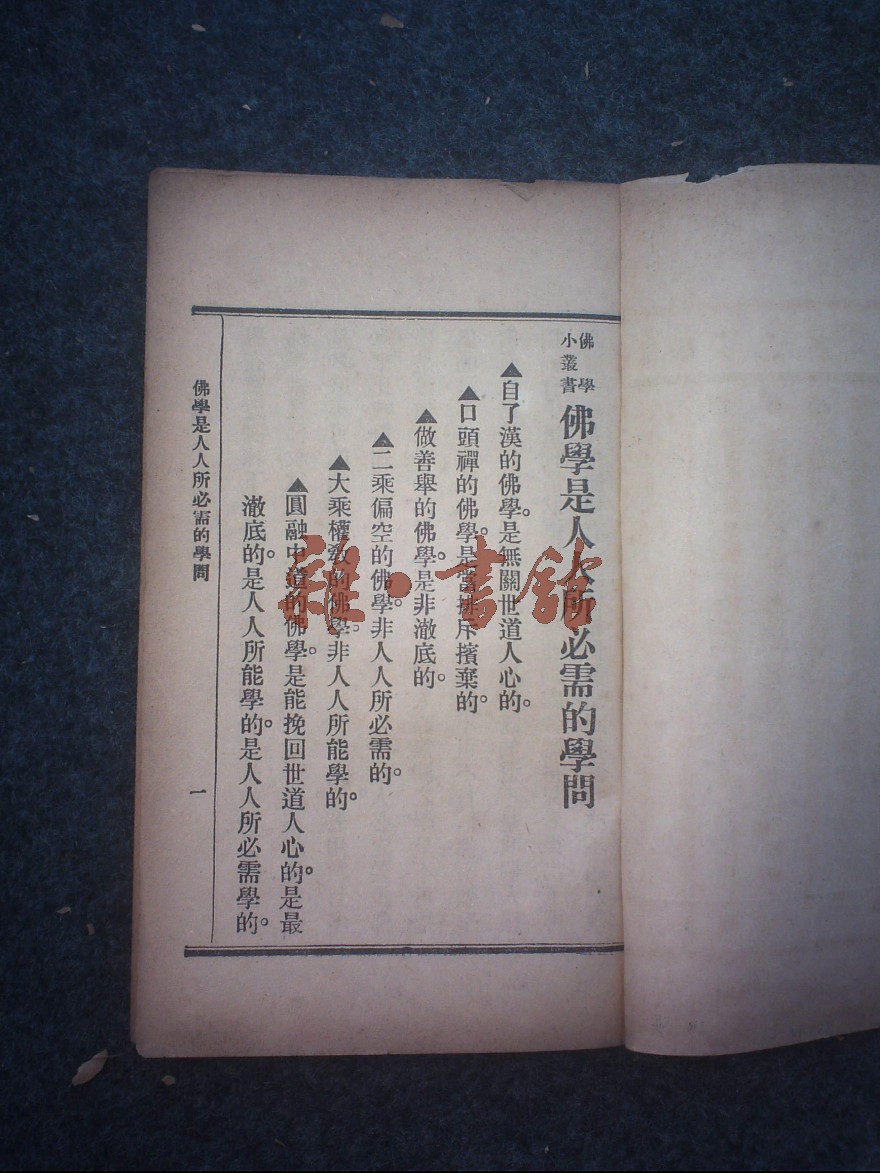 佛學
小叢書
佛學是人人所必需的學問
▲自了漢的佛學。是無關世道人心的。
▲口頭禪的佛學。是當排斥擯棄的。
▲做善舉的佛學。是非澈底的。
▲二乘偏空的佛學。非人人所必需的。
▲大乘權教的佛學。非人人所能學的。
▲圓融中道的佛學。是能挽回世道人心的。是最
澈底的。是人人所能學的。是人人所必需學的。
佛學是人人所必需的學問
一
雜·書館